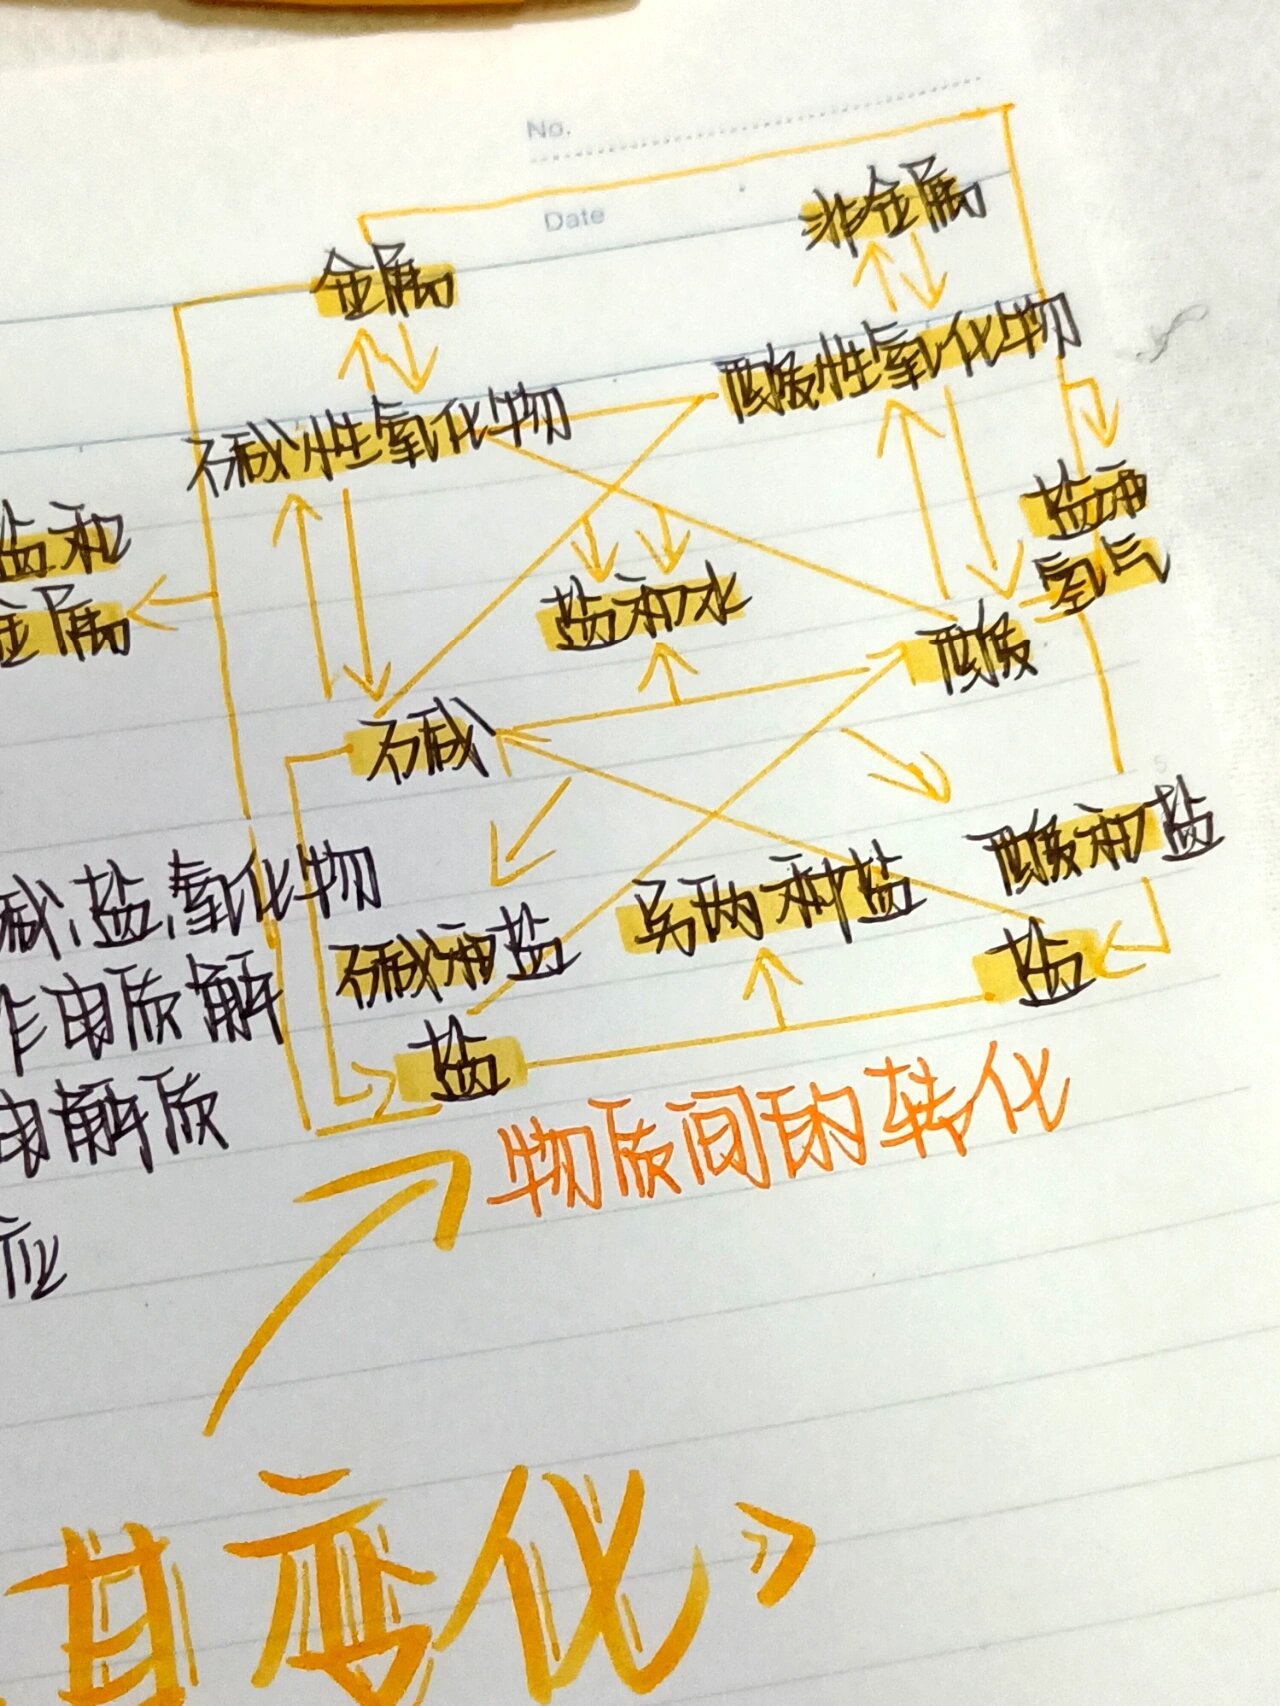 No.
Date
金属
非金属
碱性氧化物
酸性氧化物
盐和
金属
盐和
氢气
盐和水
碱
酸
碱和盐
另两种盐
酸和盐
盐
盐
碱、盐、氧化物
电质解
电解质
应
物质间的转化
其变化》